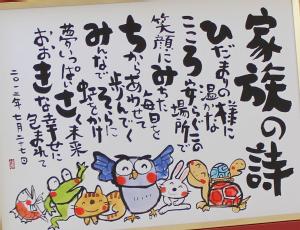 家族の詩
ひだまりの様に
温かな
こころ安らぐ場所で
笑顔にみちた
毎日を
ちからあわせて
歩んでく
みんなでそらに
虹をかけ
夢いっぱいさく未来
おおきな幸せに
包まれて
二〇一三年七月二十七日